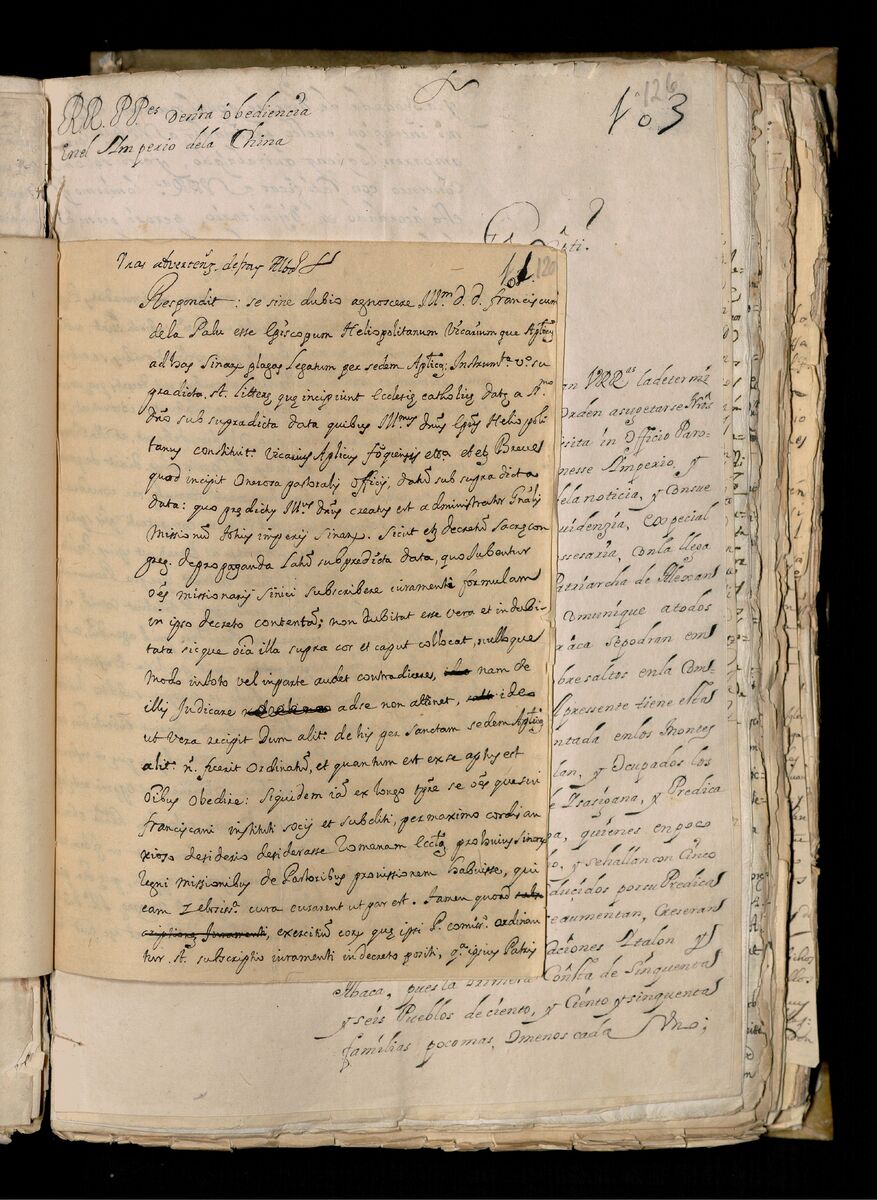 RR. PP.es Denra obediencia
En el Imperio dela China
126
No 3
Respondit: se sine dubio agnoscere Illm. D. D. franciscum
dela Palu esse Episcopum Heliopolitanum Vicarium que Aptcu
ad has Sinarz plagas legatum per sedem Apticą; Instrumta. vo. su
pradicta. st. litterę quę incipiunt Ecclesię catholicę datę a Smo
Dño sub supradicta data quibus Illmus Dñus Epũs Heliopoli
tanus constituitr. Vicarius Aplicus foquiensis et etz Breve
quod incipit Onerosa pastoralis officij, datũ sub supradicta
data: quo predictus Illus Dñus creatus est administrator Gnãlis
Missionũ totius imperij Sinarz. Sicut etz decretũ sacręcon
greg. depropaganda latũ subpredicta data, quo Iubentur
oẽs missionarij sinici subscribere iuramenti formulam
in ipso decreto contentã; non dubitat esse vera et indubi-
tata sicque oĩa illa supra cor et caput collocat, nulloque
modo intoto vel inparte audet contradicere, nam de
illis Iudicare adse non attinet, ideo
ut vera recipit Dum alitr. de his per Sanctam sedem Apticą
alitr. ñ. fuerit ordinatũ, et quantum est exse aptus est
oĩbus obedire: Siquidem iã ex longo tpre se oẽs que sui
franciscani instituti socij et subditi, per maximo cordis an
xioso desiderio desiderasse Romanam Eccłã, probuius Sinarz
Regni missionibus de Pastoribus provissionem habuisse, qui
eam curã curarent ut par est. tamen quoad
criptione Iuramenti, exercitiũ corz quę ipsi P. comissr. ordinan
tur. st. subscriptio iuramenti in decreto positi, qa. ipsius Patris
an VRRas ladeterm
Orden asugetarse
sita in Officio Paro-
nesse Imperio, y
dela noticia, y Consue
especial
ssesaria, conla llega
Patriarcha de Alexan
Comunique atodos
raca sepodran em
bresaltos enla Com
l pressente tiene esta
ntada enlos Montes
lan, y Ocupados los
e Itasigana, y Predica
pa, quienes enpoco
o, y sehallan con Cinco
ducidos porsu Predica
eaumentan, Creseran
aciones Italon y
Abaca, pues la primera Consta de Sinquenta
y seis Pueblos deciento, y Ciento y sinquenta
familias poco mas, omenos cada Uno;